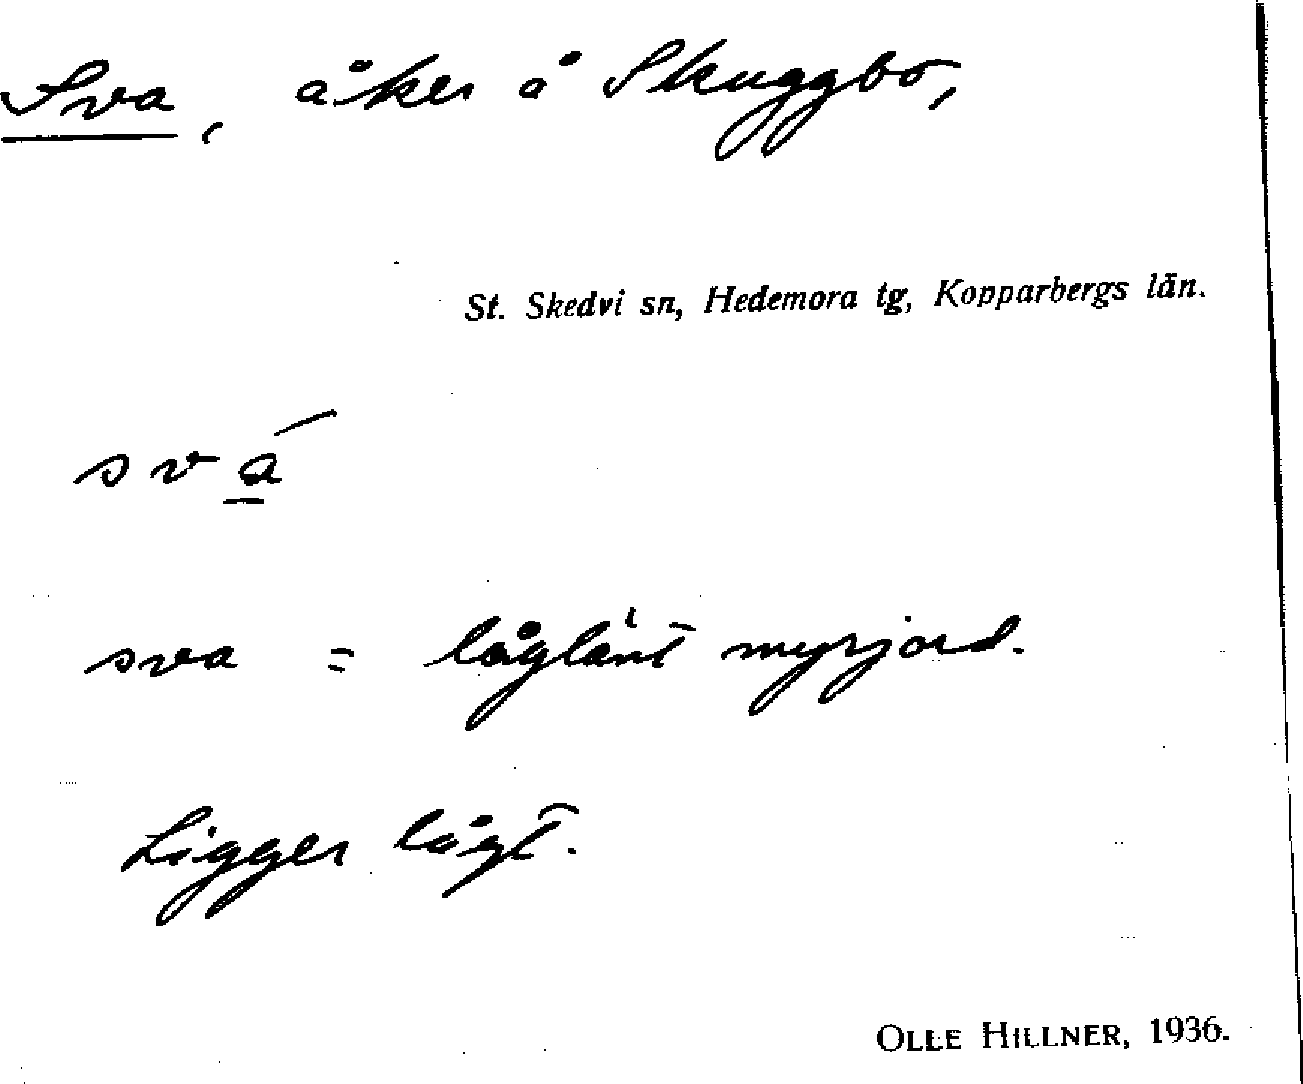 Sva, åker å Skuggbo,
St. Skedvi sn, Hedemora tg, Kopparbergs län.
svá
sva = låglänt myrjord.
Ligger lågt.
OLLE HILLNER, 1936.